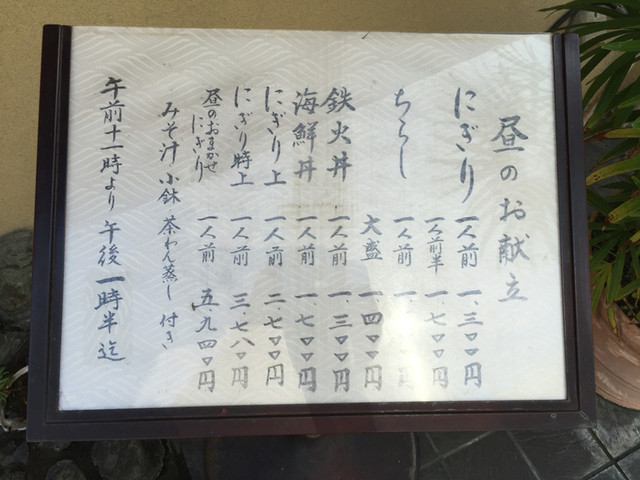 昼のお献立
にぎり 一人前 一、三〇〇円
一人前半 一、七〇〇円
ちらし 一人前 一、
大盛 一、四〇〇円
鉄火丼 一人前 一、三〇〇円
海鮮丼 一人前 一、七〇〇円
にぎり上 一人前 二、七〇〇円
にぎり特上 一人前 三、七八〇円
昼のおまかせにぎり 一人前 五、九四〇円
みそ汁 小鉢 茶わん蒸し 付き
午前十一時より 午後一時半迄